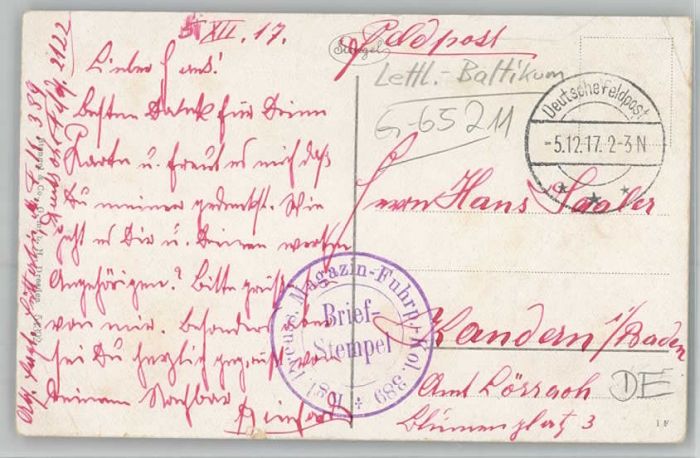 5. XII. 17.
Lieber Hans!
Besten Dank für Deine
Karte u. freut es mich daß
Du meiner gedenkst. Wie
geht es Dir u. Deinen werten
Angehörigen? Bitte grüße
von mir. Besonders aber
sei Du herzlich gegrüßt von
Deinem Nachbar
389
Deutsche Feldp. 2122
Stengel
Feldpost
Lettl.-Baltikum
G-65 211
Deutsche Feldpost
-5.12.17. 2-3 N
Herrn Hans Saaler
Kandern i/Baden
Amt Lörrach
Blumenplatz 3
DE
Kgl. Preuss. Magazin-Fuhrp.-Kol. 389
Brief-
Stempel